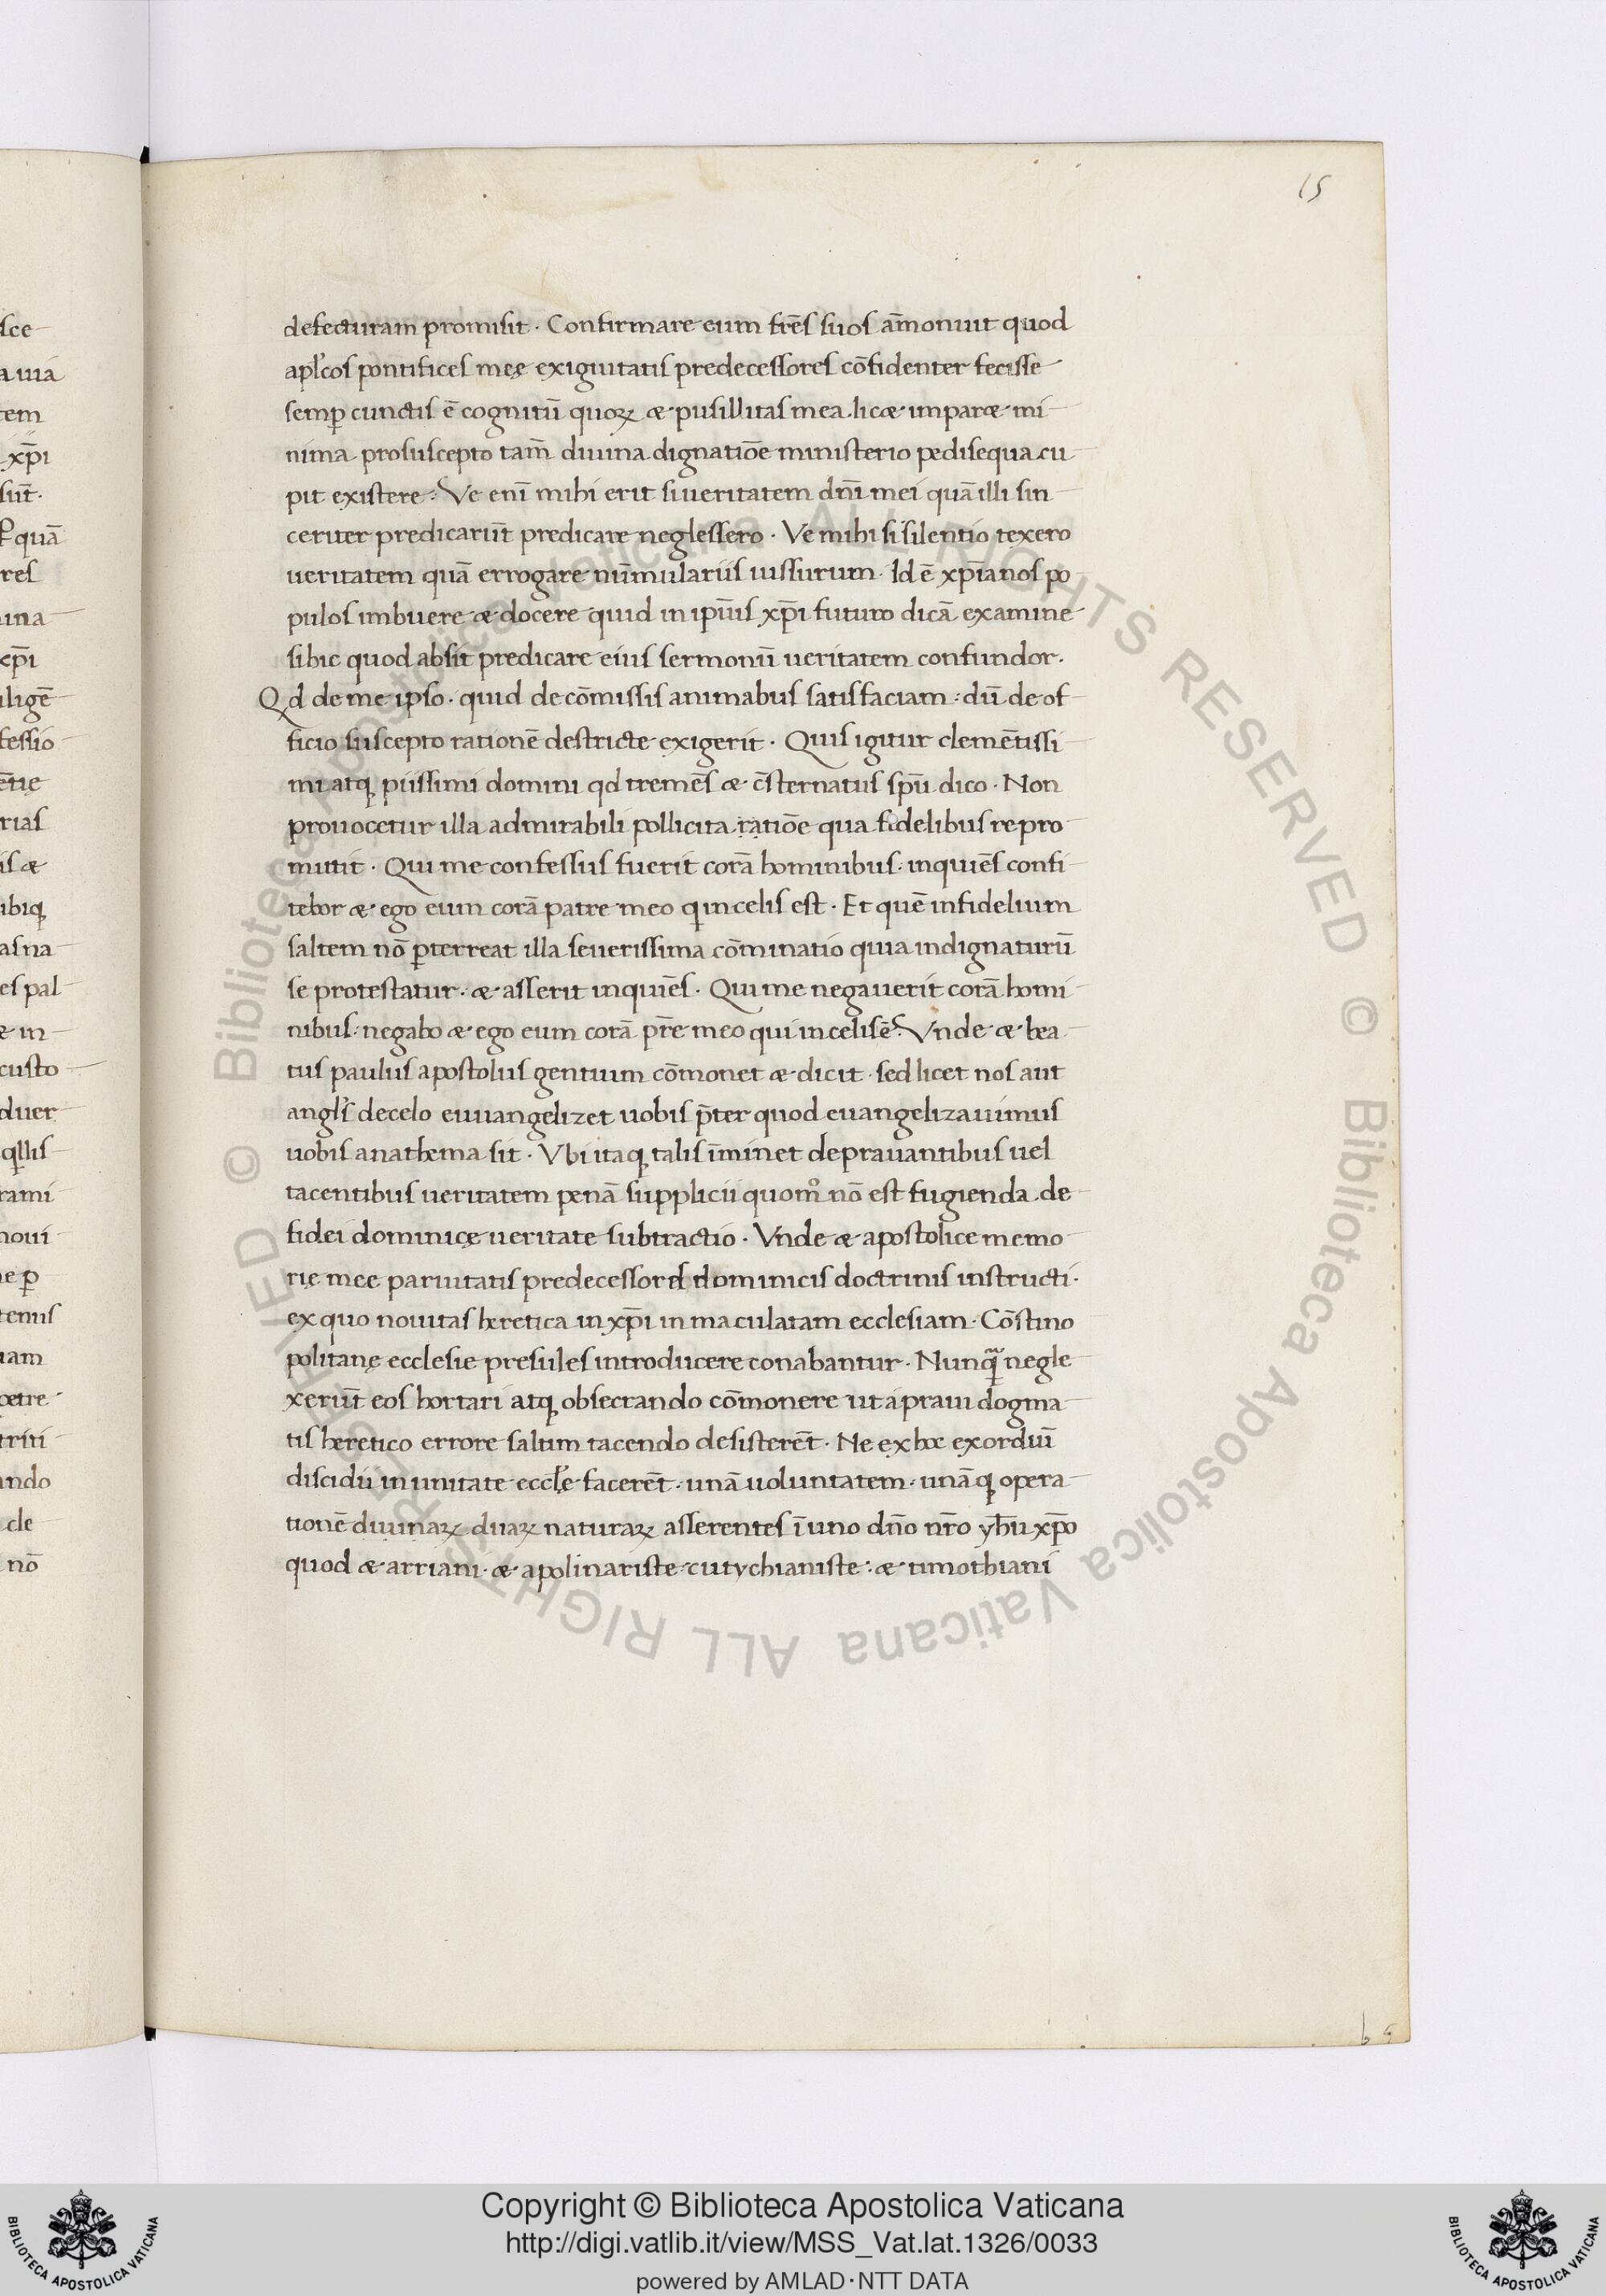 15
sce
defecturam promisit · Confirmare eum fr̄es suos am̄onuit quod
a uia
apl̓cos pontifices meę exiguitatis predecessores cōfidenter fecisse
tem
semꝑ cunctis ē cognitū quoꝝ & pusillitas mea · lic& impar & mi
xp̄i
nima pro suscepto tam̄ diuina dignatiōe ministerio pedisequa cu
sūt·
pit existere · Ve enī mihi erit si ueritatem dn̄i mei quā illi sin
quā
ceriter predicarūt predicare neglessero · Ve mihi si silentio texero
res
ueritatem quā errogare nūmulariis iussurum · Id ē xp̄ianos po
ina
pulos imbuere & docere quid in ip̄ius xp̄i futuro dicā examine
xp̄i
si hic quod absit predicare eius sermonū ueritatem confundor·
iligē
Qd de me ipso · quid de cōmissis animabus satisfaciam · dū de of
fessio
ficio suscepto rationē destricte exigerit · Quis igitur clemētissi
ētię
mi atq piissimi domini qd tremēs & c̄sternatus sp̄u dico · Non
rias
prouocetur illa admirabili pollicita ratiōe qua fidelibus repro
is &
mittit · Qui me confessus fuerit corā hominibus · inquiēs confi
ibiq
tebor & ego eum corā patre meo q in celis est · Et quē infidelium
as na
saltem nō ꝑterreat illa seuerissima cōminatio quia indignaturū
es pal
se protestatur · & asserit inquiēs · Qui me negauerit corā homi
& in
nibus · negabo & ego eum corā pr̄e meo qui in celis ē · Vnde & bea
custo
tus paulus apostolus gentium cōmonet & dicit · sed licet nos aut
duer
angl̓s de celo euuangelizet uobis p̄ter quod euangelizauimus
qllis
uobis anathema sit · Vbi itaq talis īminet deprauantibus uel
rami
tacentibus ueritatem penā supplicii quomͦ nō est fugienda de
noui
fidei dominicę ueritate subtractio · Vnde & apostolice memo
e ꝑ
rię mee paruitatis predecessores dominicis doctrinis instructi·
tenus
ex quo nouitas heretica in xp̄i inmaculatam ecclesiam · Cōstino
uam
politanę ecclesie presules introducere conabantur · Nunqᷓ negle
petre
xerūt eos hortari atq obsecrando cōmonere ut a praui dogma
triti
tis heretico errore saltim tacendo desisterēt · Ne ex hoc exordiū
ando
discidii in unitate eccl̓ę facerēt · unā uoluntatem · unāq opera
cle
tionē diuinaꝝ duaꝝ naturaꝝ asserentes ī uno dn̄o nr̄o yh̄u xp̄o
nō
quod & arriani · & apolinariste · eutychianiste · & timothiani
b 5
© Biblioteca Apostolica Vaticana ALL RIGHTS RESERVED © Biblioteca Apostolica Vaticana ALL RIGHTS RESERVED
Copyright © Biblioteca Apostolica Vaticana
http://digi.vatlib.it/view/MSS_Vat.lat.1326/0033
powered by AMLAD·NTT DATA
BIBLIOTECA APOSTOLICA VATICANA
BIBLIOTECA APOSTOLICA VATICANA